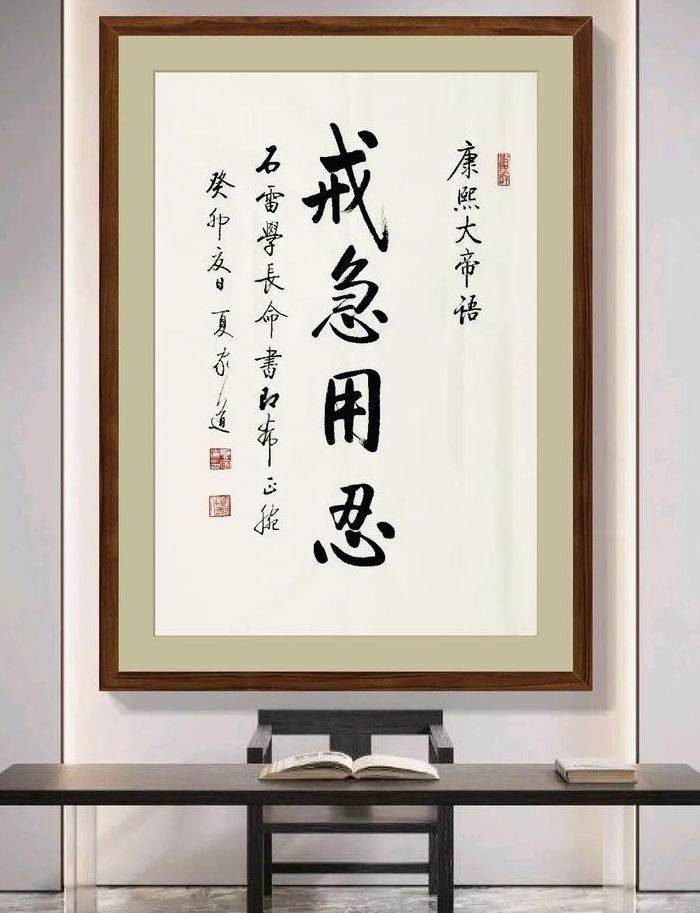 康熙大帝语
戒急用忍
石雷學長命書即希正腕
癸卯夏日 夏家道